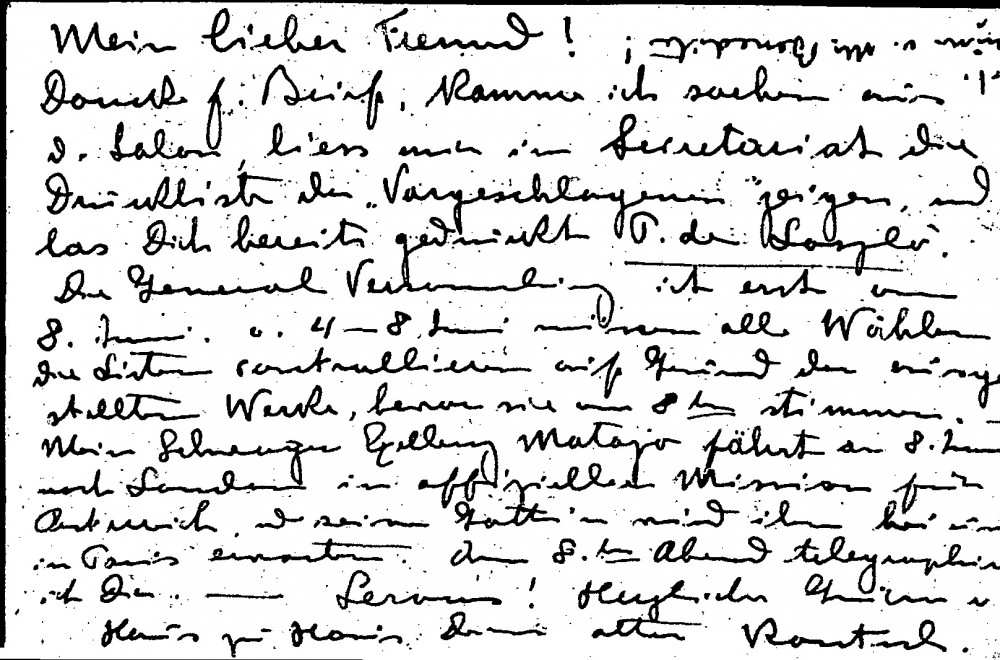 Mein lieber Freund!
Danke f. Brief, komme ich soeben aus
d. Salon, liess mir im Secretariat die
Druckliste der „Vorgeschlagenen" zeigen, und
las Dich bereits gedruckt P. de Laszló.
Die General Versammlung ist erst am
8. Juni. v. 4–8 Juni müssen alle Wähler
die Listen controllieren auf Grund der ausge
stellten Werke, bevor sie am 8ten stimmen.
Mein Schwager Exellenz Mataja fährt an 8. Juni
nach London in offizieller Mission für
Österreich u seine Gattin wird ihn bei uns
in Paris erwarten. Am 8.ten Abend telegraphire
ich Dir. — Servus! Herzliche Grüsse v
Haus zu Haus Dein alter Kautsch.